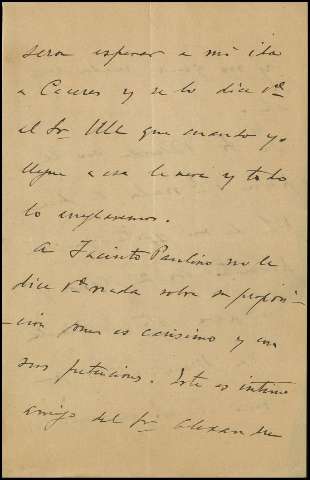 será esperar a mi ida
a Caceres y se lo dice Vd
al Sr. Ulle que cuando yo
llegue a esa le veré y todo
lo arreglaremos.
A Jacinto Paulino no le
dice Vd nada sobre su proposi-
-ción pues es carisimo y con
sus pretensiones. Este es intimo
amigo del Sr. Alexandre